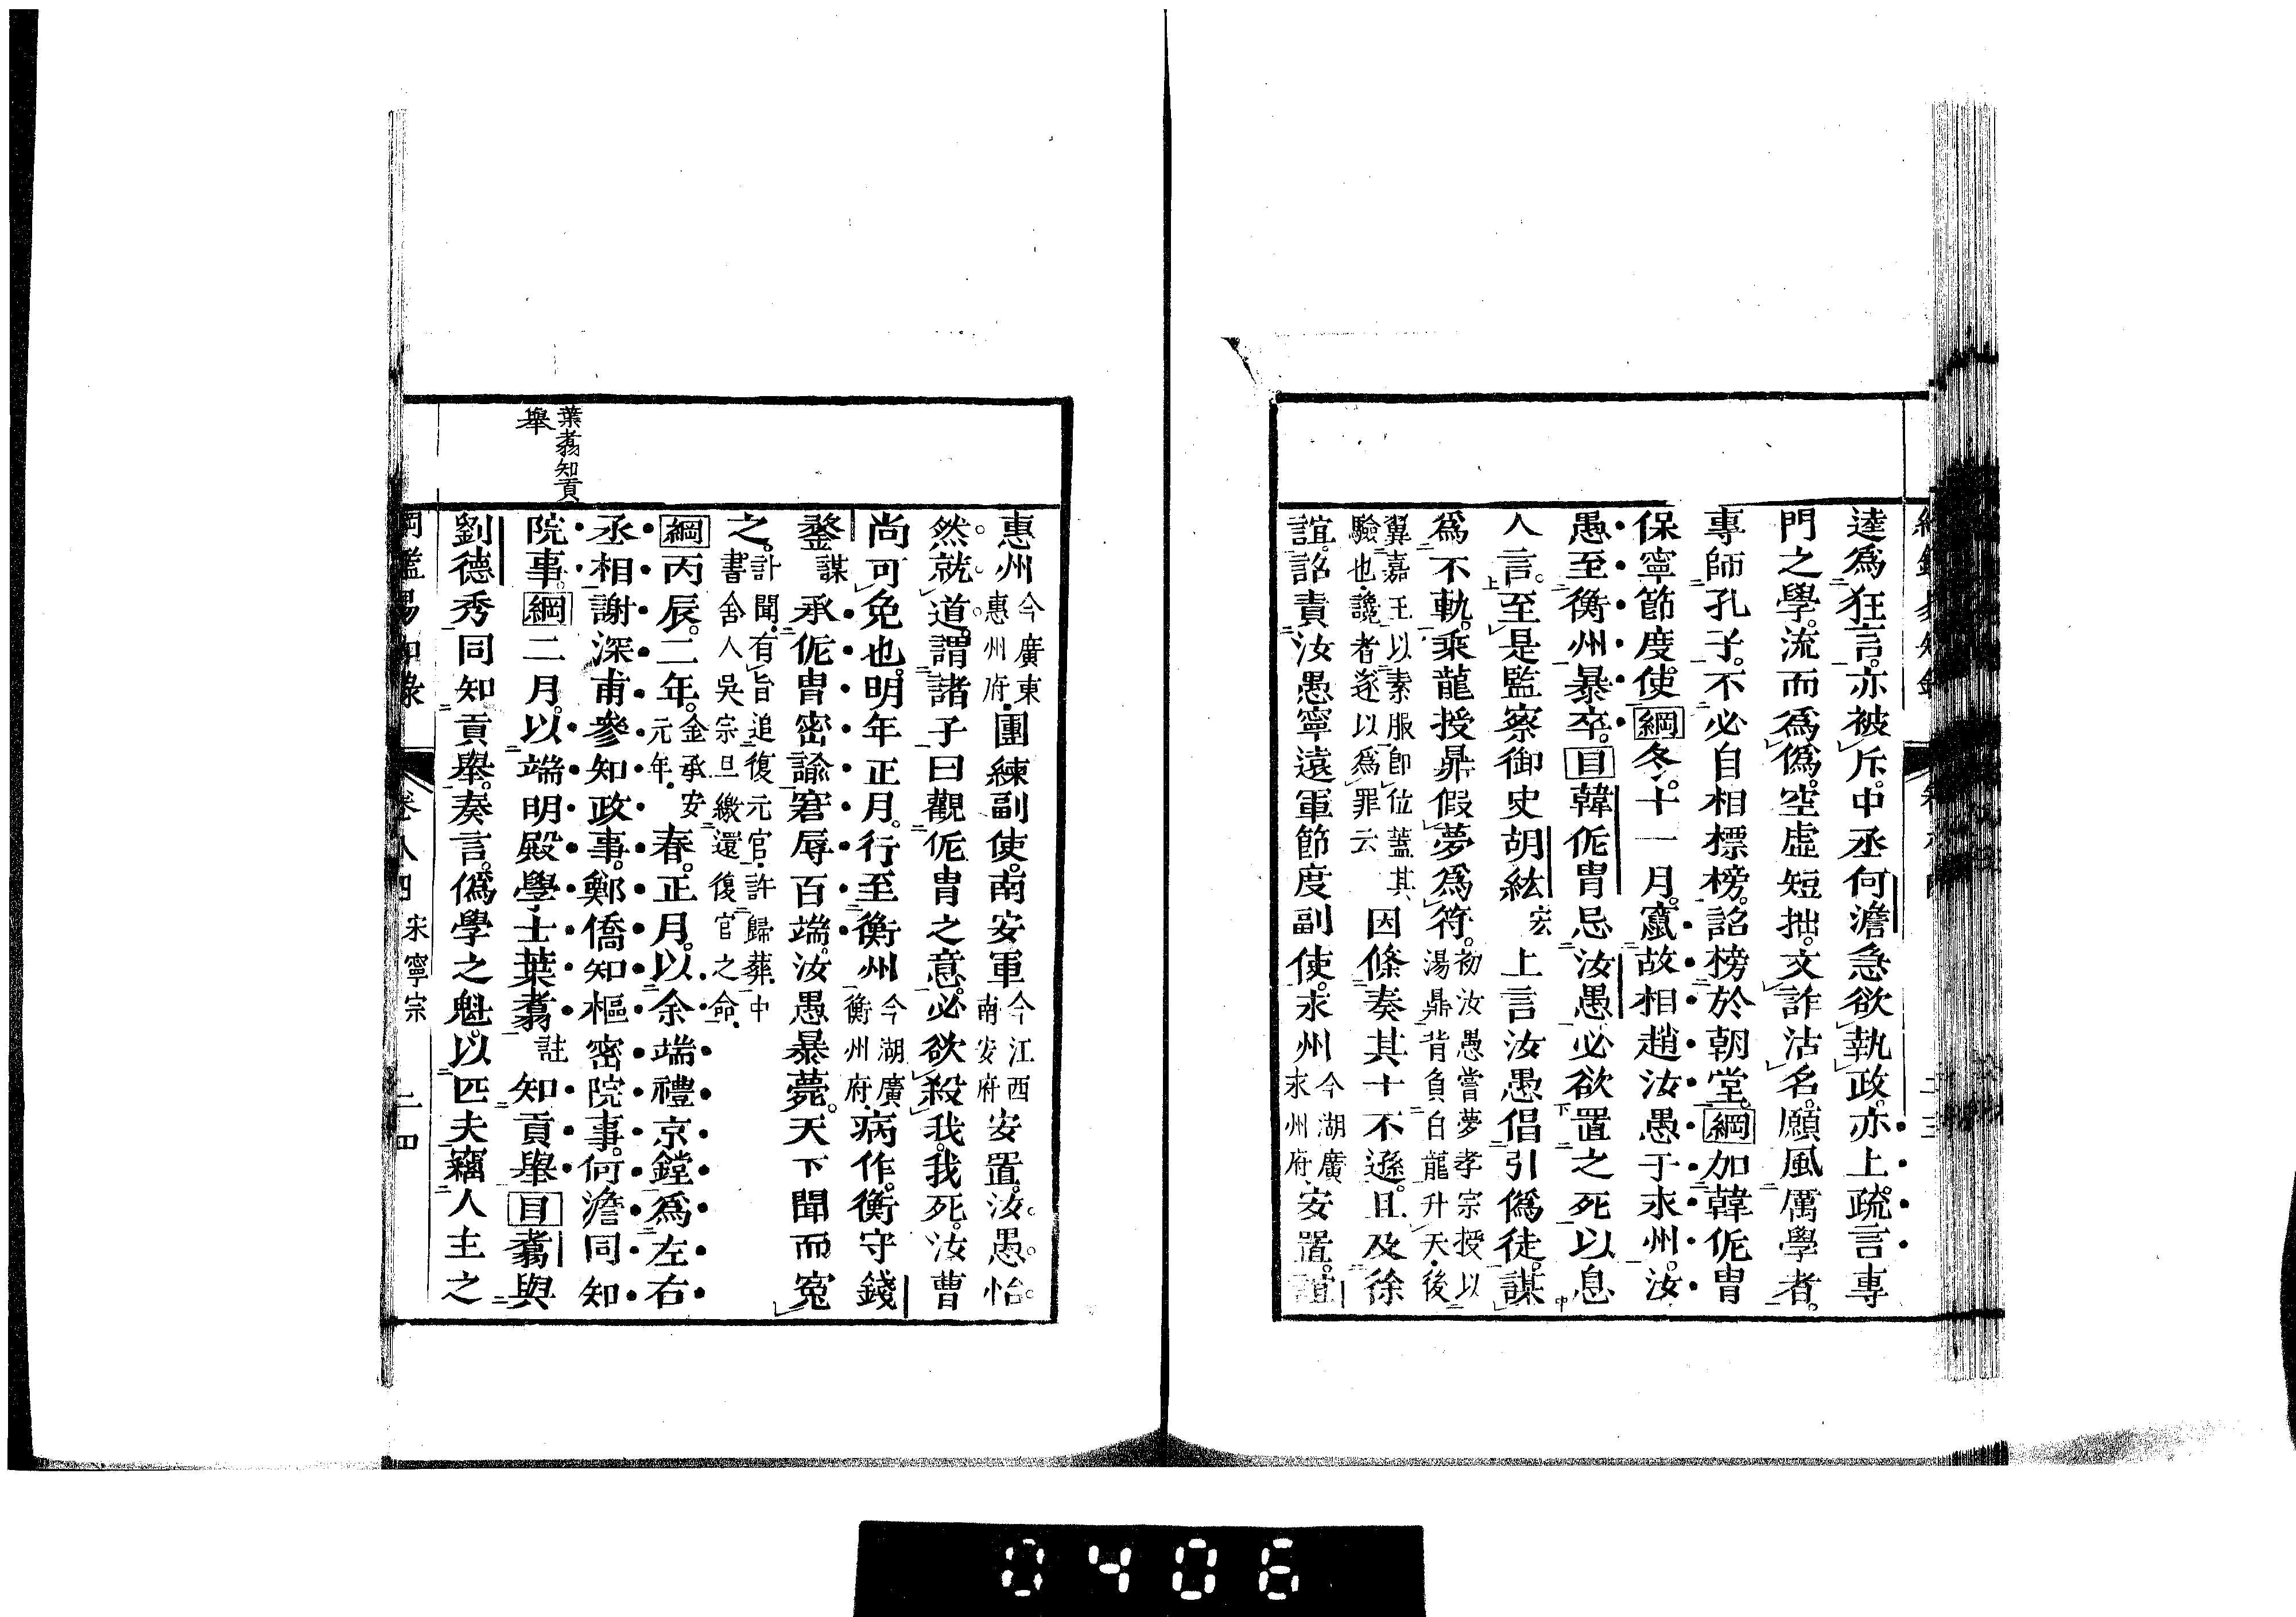 逵爲狂言。亦被斥。中丞何澹急欲執政。亦上疏言專
門之學。流而爲僞。空虛短拙。文詐沽名。願風厲學者。
專師孔子。不必自相標榜。詔榜於朝堂。綱加韓侂冑
保寧節度使。綱冬。十一月。竄故相趙汝愚于永州。汝
愚至衡州暴卒。目韓侂冑忌汝愚。必欲置之死以息
人言。至是監察御史胡紘宏上言汝愚倡引僞徒。謀
爲不軌。乘龍授鼎假夢爲符。初汝愚嘗夢孝宗授以湯鼎背負白龍升天。後
翼嘉王以素服卽位蓋其驗也。讒者遂以爲罪云因條奏其十不遜。且及徐
誼。詔責汝愚寧遠軍節度副使。永州今湖廣永州府。安置。誼
惠州今廣東惠州府。團練副使。南安軍今江西南安府安置。汝愚怡
然就道。謂諸子曰觀侂冑之意。必欲殺我。我死。汝曹
尚可免也。明年正月。行至衡州今湖廣衡州府。病作。衡守錢
鍪謀承侂冑密諭。窘辱百端。汝愚暴薨。天下聞而冤
之。訃聞。有旨追復元官。許歸葬。中書舍人吳宗旦繳還復官之命。
綱丙辰。二年。金承安元年。春。正月。以余端禮京鏜爲左右
丞相。謝深甫參知政事。鄭僑知樞密院事。何澹同知
院事。綱二月。以端明殿學士葉翥註知貢舉。目翥與
劉德秀同知貢舉。奏言。僞學之魁。以匹夫竊人主之
葉翥知貢
舉
綱鑑易知錄 卷八四 宋寧宗 二四
0406